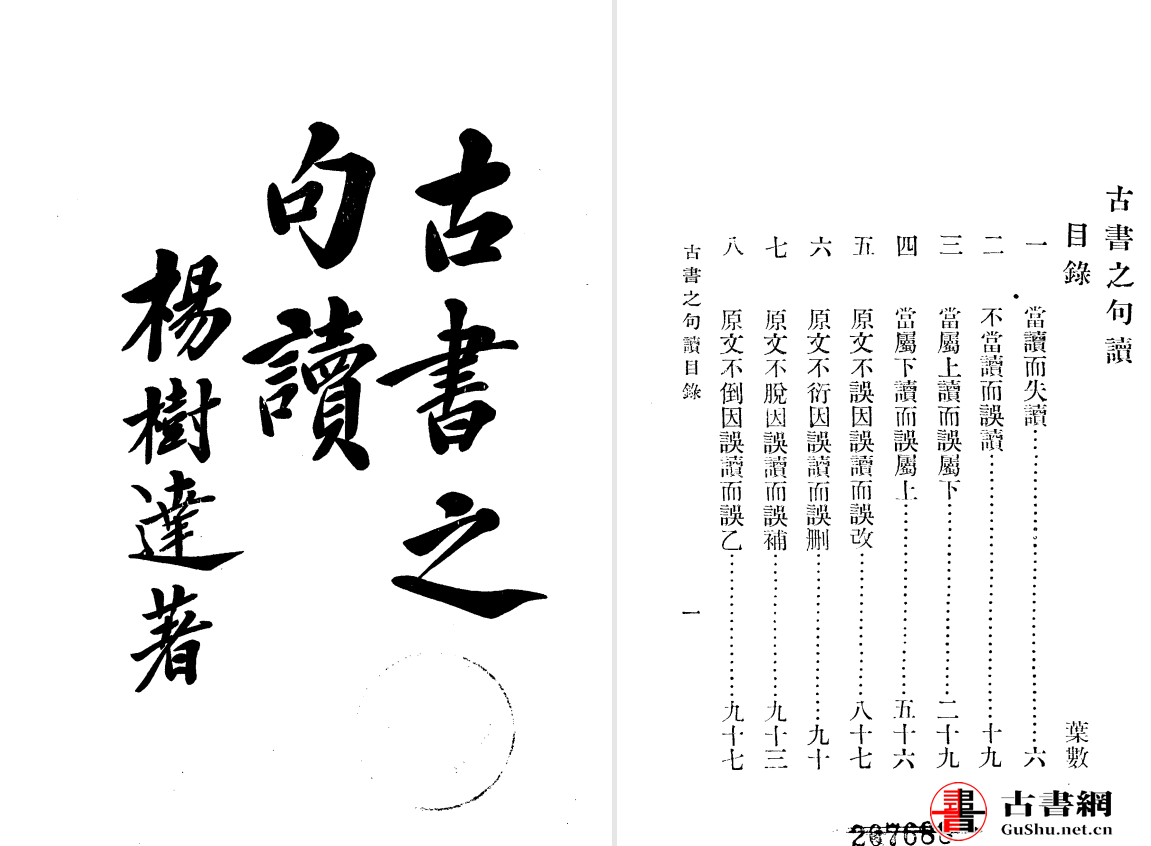 古書之
句讀
楊樹達著
古書之句讀
目錄 葉數
一 當讀而失讀……六
二 不當讀而誤讀……十九
三 當屬上讀而誤屬下……二十九
四 當屬下讀而誤屬上……五十六
五 原文不誤因誤讀而誤改……八十七
六 原文不衍因誤讀而誤刪……九十
七 原文不脫因誤讀而誤補……九十三
八 原文不倒因誤讀而誤乙……九十七
古書之句讀目錄 一
書
古書網
GuShu.net.cn